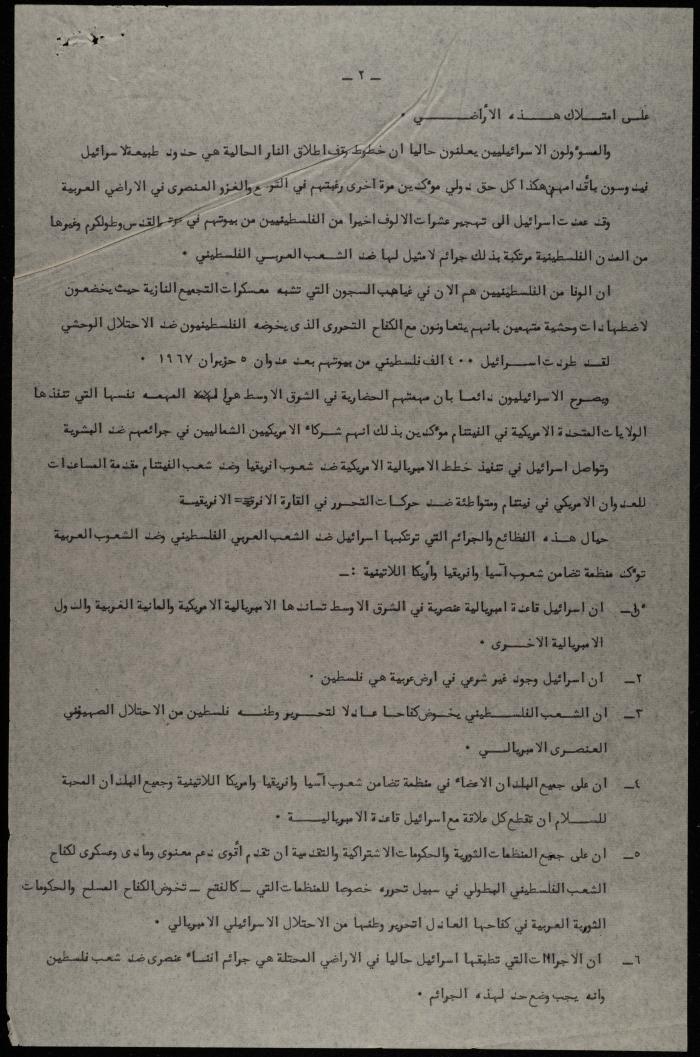 ـ ٢ ـ
على امتلاك هذه الأراضي ٠
والمسوءولون الاسرائيليين يعلنون حاليا ان خطوط وقف اطلاق النار الحالية هي حدود طبيعة لاسرائيل
فيدوسون بأقدامهم هكذا كل حق دولي موءكدين مرة اخرى رغبتهم في التوسع والغزو العنصرى في الاراضي العربية
وقد عمدت اسرائيل الى تهجير عشرات الالوف اخيرا من الفلسطينيين من بيوتهم في غزة القدس وطولكرم وغيرها
من المدن الفلسطينية مرتكبة بذلك جرائم لا مثيل لها ضد الشعب العربي الفلسطيني ٠
ان الوفا من الفلسطينيين هم الان في غياهب السجون التي تشبه معسكرات التجميع النازية حيث يخضعون
لاضطهادات وحشية متهمين بانهم يتعاونون مع الكفاح التحررى الذى يخوضه الفلسطينيون ضد الاحتلال الوحشي
لقد طردت اسرائيل ٤٠٠ الف فلسطيني من بيوتهم بعد عدوان ٥ حزيران ١٩٦٧ ٠
ويصرح الاسرائيليون دائما بان مهمتهم الحضارية في الشرق الاوسط هي المهمه نفسها التي تنفذها
الولايات المتحدة الامريكية في الفيتنام موءكدين بذلك انهم شركاء الامريكيين الشماليين في جرائمهم ضد البشرية
وتواصل اسرائيل في تنفيذ خطط الامبريالية الامريكية ضد شعوب افريقيا وضد شعب الفيتنام مقدمة المساعدات
للعدوان الامريكي في فيتنام ومتواطئة ضد حركات التحرر في القارة الافريقية
حيال هذه الفظائع والجرائم التي ترتكبها اسرائيل ضد الشعب العربي الفلسطيني وضد الشعوب العربية
توءكد منظمة تضامن شعوب آسيا وافريقيا وأريكا اللاتينية :ـ
ان اسرائيل قاعدة امبريالية عنصرية في الشرق الاوسط تساندها الامبريالية الامريكية والمانية الغربية والدول
الامبريالية الاخرى ٠
٢ـ ان اسرائيل وجود غير شرعي في ارض عربية هي فلسطين ٠
٣ـ ان الشعب الفلسطيني يخوض كفاحا عادلا لتحرير وطنه فلسطين من الاحتلال الصهيوني
العنصرى الامبريالي ٠
٤ـ ان على جميع البلدان الاعضاء في منظمة تضامن شعوب آسيا وافريقيا وامريكا اللاتينية وجميع البلدان المحبة
للسلام ان تقطع كل علاقة مع اسرائيل قاعدة الامبريالية ٠
٥ـ ان على جميع المنظمات الثورية والحكومات الاشتراكية والتقدمية ان تقدم أقوى دعم معنوى ومادى وعسكرى لكفاح
الشعب الفلسطيني البطولي في سبيل تحرره خصوصا للمنظمات التي ـ كالفتح ـ تخوض الكفاح المسلح والحكومات
الثورية العربية في كفاحها العادل لتحرير وطنها من الاحتلال الاسرائيلي الامبريالي ٠
٦ـ ان الاجراءات التي تطبقها اسرائيل حاليا في الاراضي المحتلة هي جرائم افناء عنصرى ضد شعب فلسطين
وانه يجب وضع حد لهذه الجرائم ٠